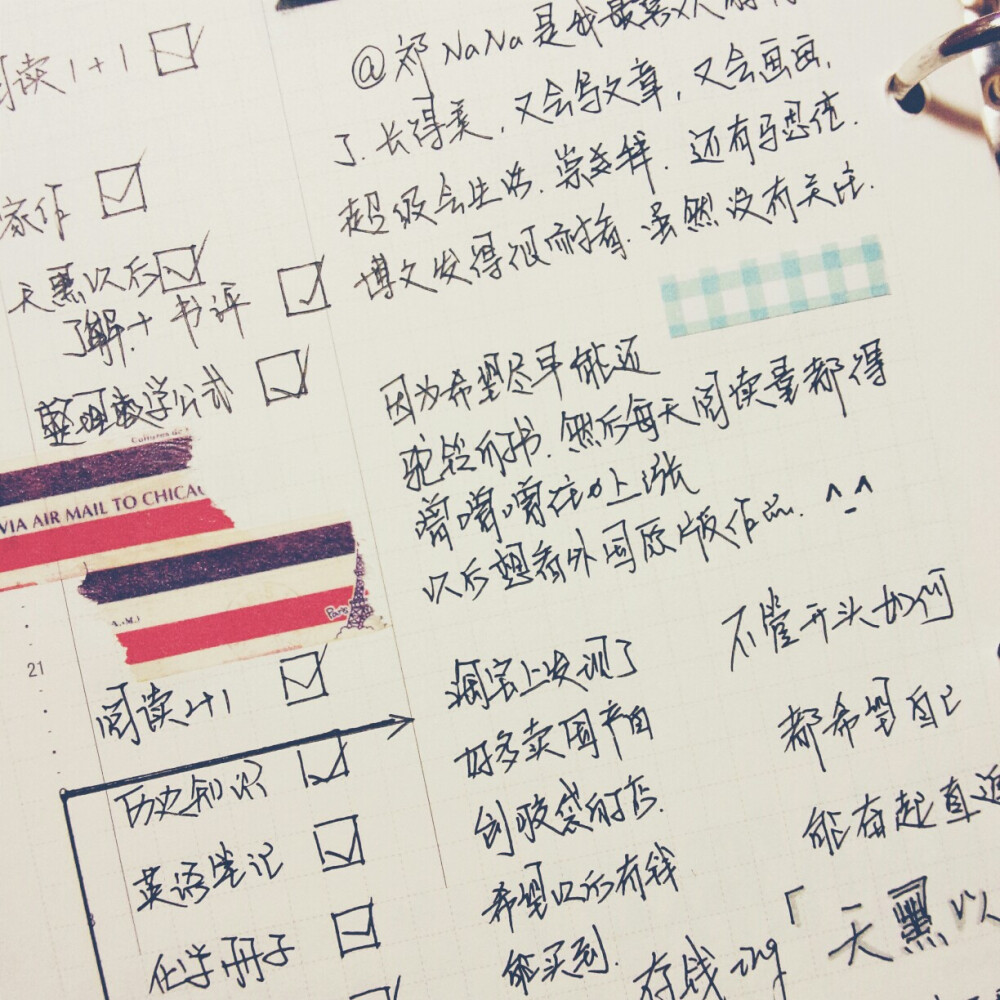 阅读1+1
家作
天黑以后
了解+书评
整理数学公式
Cultures de
VIA AIR MAIL TO CHICAG
Paris
21
阅读2+1
历史知识
英语笔记
化学册子
@祁NaNa是我最喜欢
了.长得美,又会写文章,又会画画,
超级会生活.崇美样.还有马思佳.
博文发得很耐看.虽然没有关注.
因为希望尽早能还
驼铃的书.然后每天阅读量都得
噌噌噌在往上涨
以后想看外国原版作品.^_^
淘宝上发现了
好多卖国产自
封胶袋的店.
希望以后有钱
能买到.
存钱ing
不管开头如何
都希望自己
能奋起直追
「天黑以